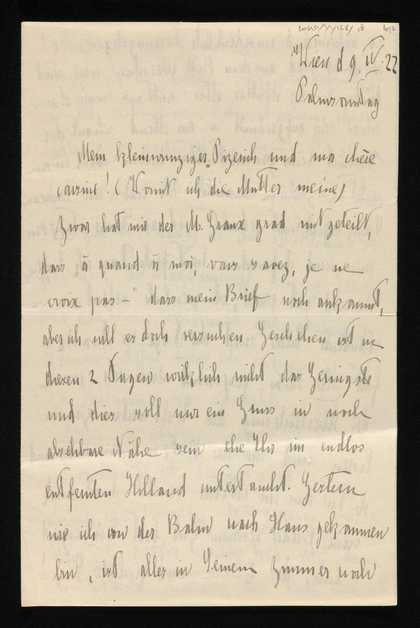 Wien d 9. IV. 22
Palmsonntag
Mein kleinwunziges und ma chère
cousine! (Komt ich die Mutter meine)
Zwar hat mir der M. Franz grad mitgeteilt,
dass "à quand à moi vous savez, je ne
crois pas –" dass mein Brief noch ankommt,
aber ich will es doch versuchen. Geschehen ist in
diesen 2 Tagen wirklich nicht das Geringste
und dies soll nur ein Gruss in noch
absehbare Nähe sein ehe Ihr im endlos
entfernten Holland untertaucht. Gestern
wie ich von der Bahn nach Haus gekommen
bin, ist alles in Deinem Zimmer noch